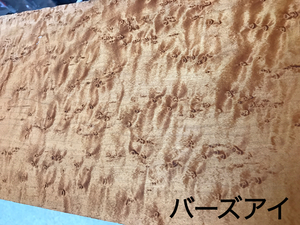 バーズアイ